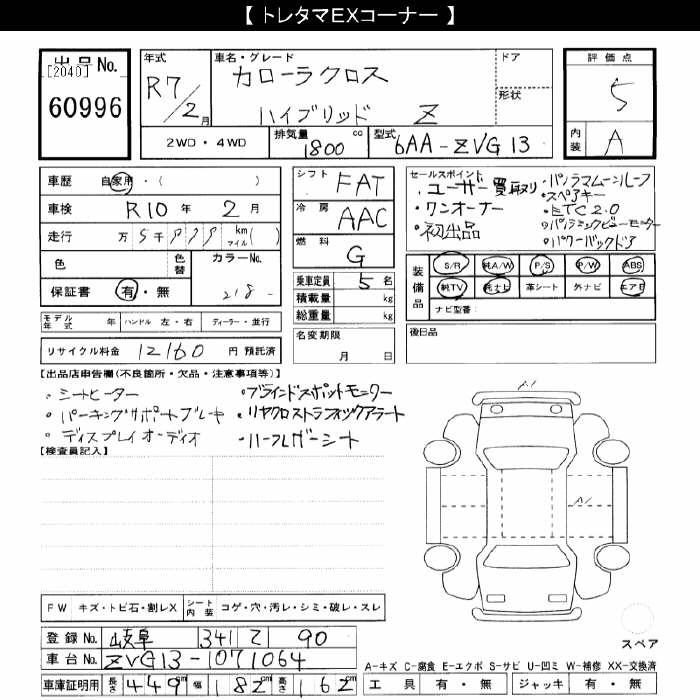 【 トレタマEXコーナー 】
出品No.
[2040]
60996
年式
R7/2月
車名・グレード
カローラクロス
ハイブリッド Z
ドア
形状
評価点
5
内装
A
2WD・4WD
排気量
1800 cc
型式
6AA-ZVG13
車歴 自家用・( )
車検 R10年 2月
走行 万 5千 km マイル( )
色
色替
カラーNo.
218-
保証書 有・無
シフト
FAT
冷房
AAC
燃料
G
乗車定員 5名
積載量 kg
総重量 kg
名変期限
月 日
セールスポイント
・ユーザー買取り
・ワンオーナー
・初出品
・パノラマムーンルーフ
・スペアキー
・ETC2.0
・パノラミックビューモニター
・パワーバックドア
装備品
S/R 純A/W P/S P/W ABS
純TV 純ナビ 革シート 外ナビ エアB
ナビ型番
後日品
モデル年式 年 ハンドル 左・右 ディーラー・並行
リサイクル料金 12160 円 預託済
【出品店申告欄(不良箇所・欠品・注意事項等)】
・シートヒーター
・パーキングサポートブレーキ
・ディスプレイオーディオ
・ブラインドスポットモニター
・リヤクロストラフィックアラート
・ハーフレザーシート
【検査員記入】
A1
A1
FW キズ・トビ石・割レX シート内装 コゲ・穴・汚レ・シミ・破レ・スレ
登録No. 岐阜 341 て 90
車台No. ZVG13-1071064
車庫証明用 長さ 449cm 幅 182cm 高さ 162cm
スペア
A-キズ C-腐食 E-エクボ S-サビ U-凹ミ W-補修 XX-交換済
工具 有・無 ジャッキ 有・無